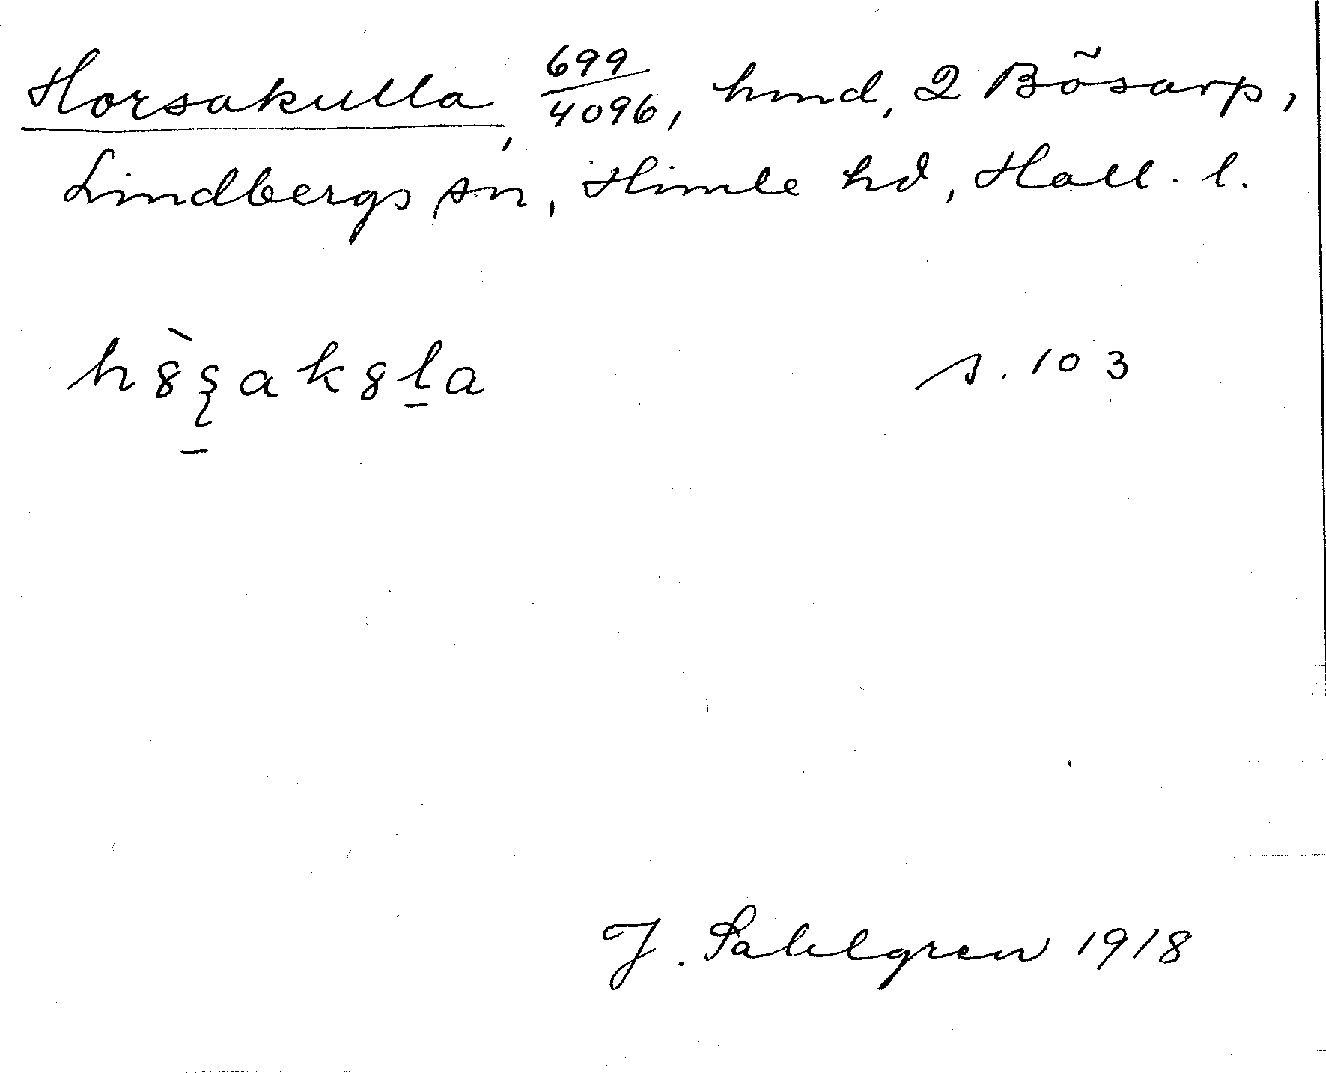 Horsakulla, 699/4096, hmd, 2 Bösarp,
Lindbergs sn, Himle hd, Hall. l.
s. 103
J. Sahlgren 1918